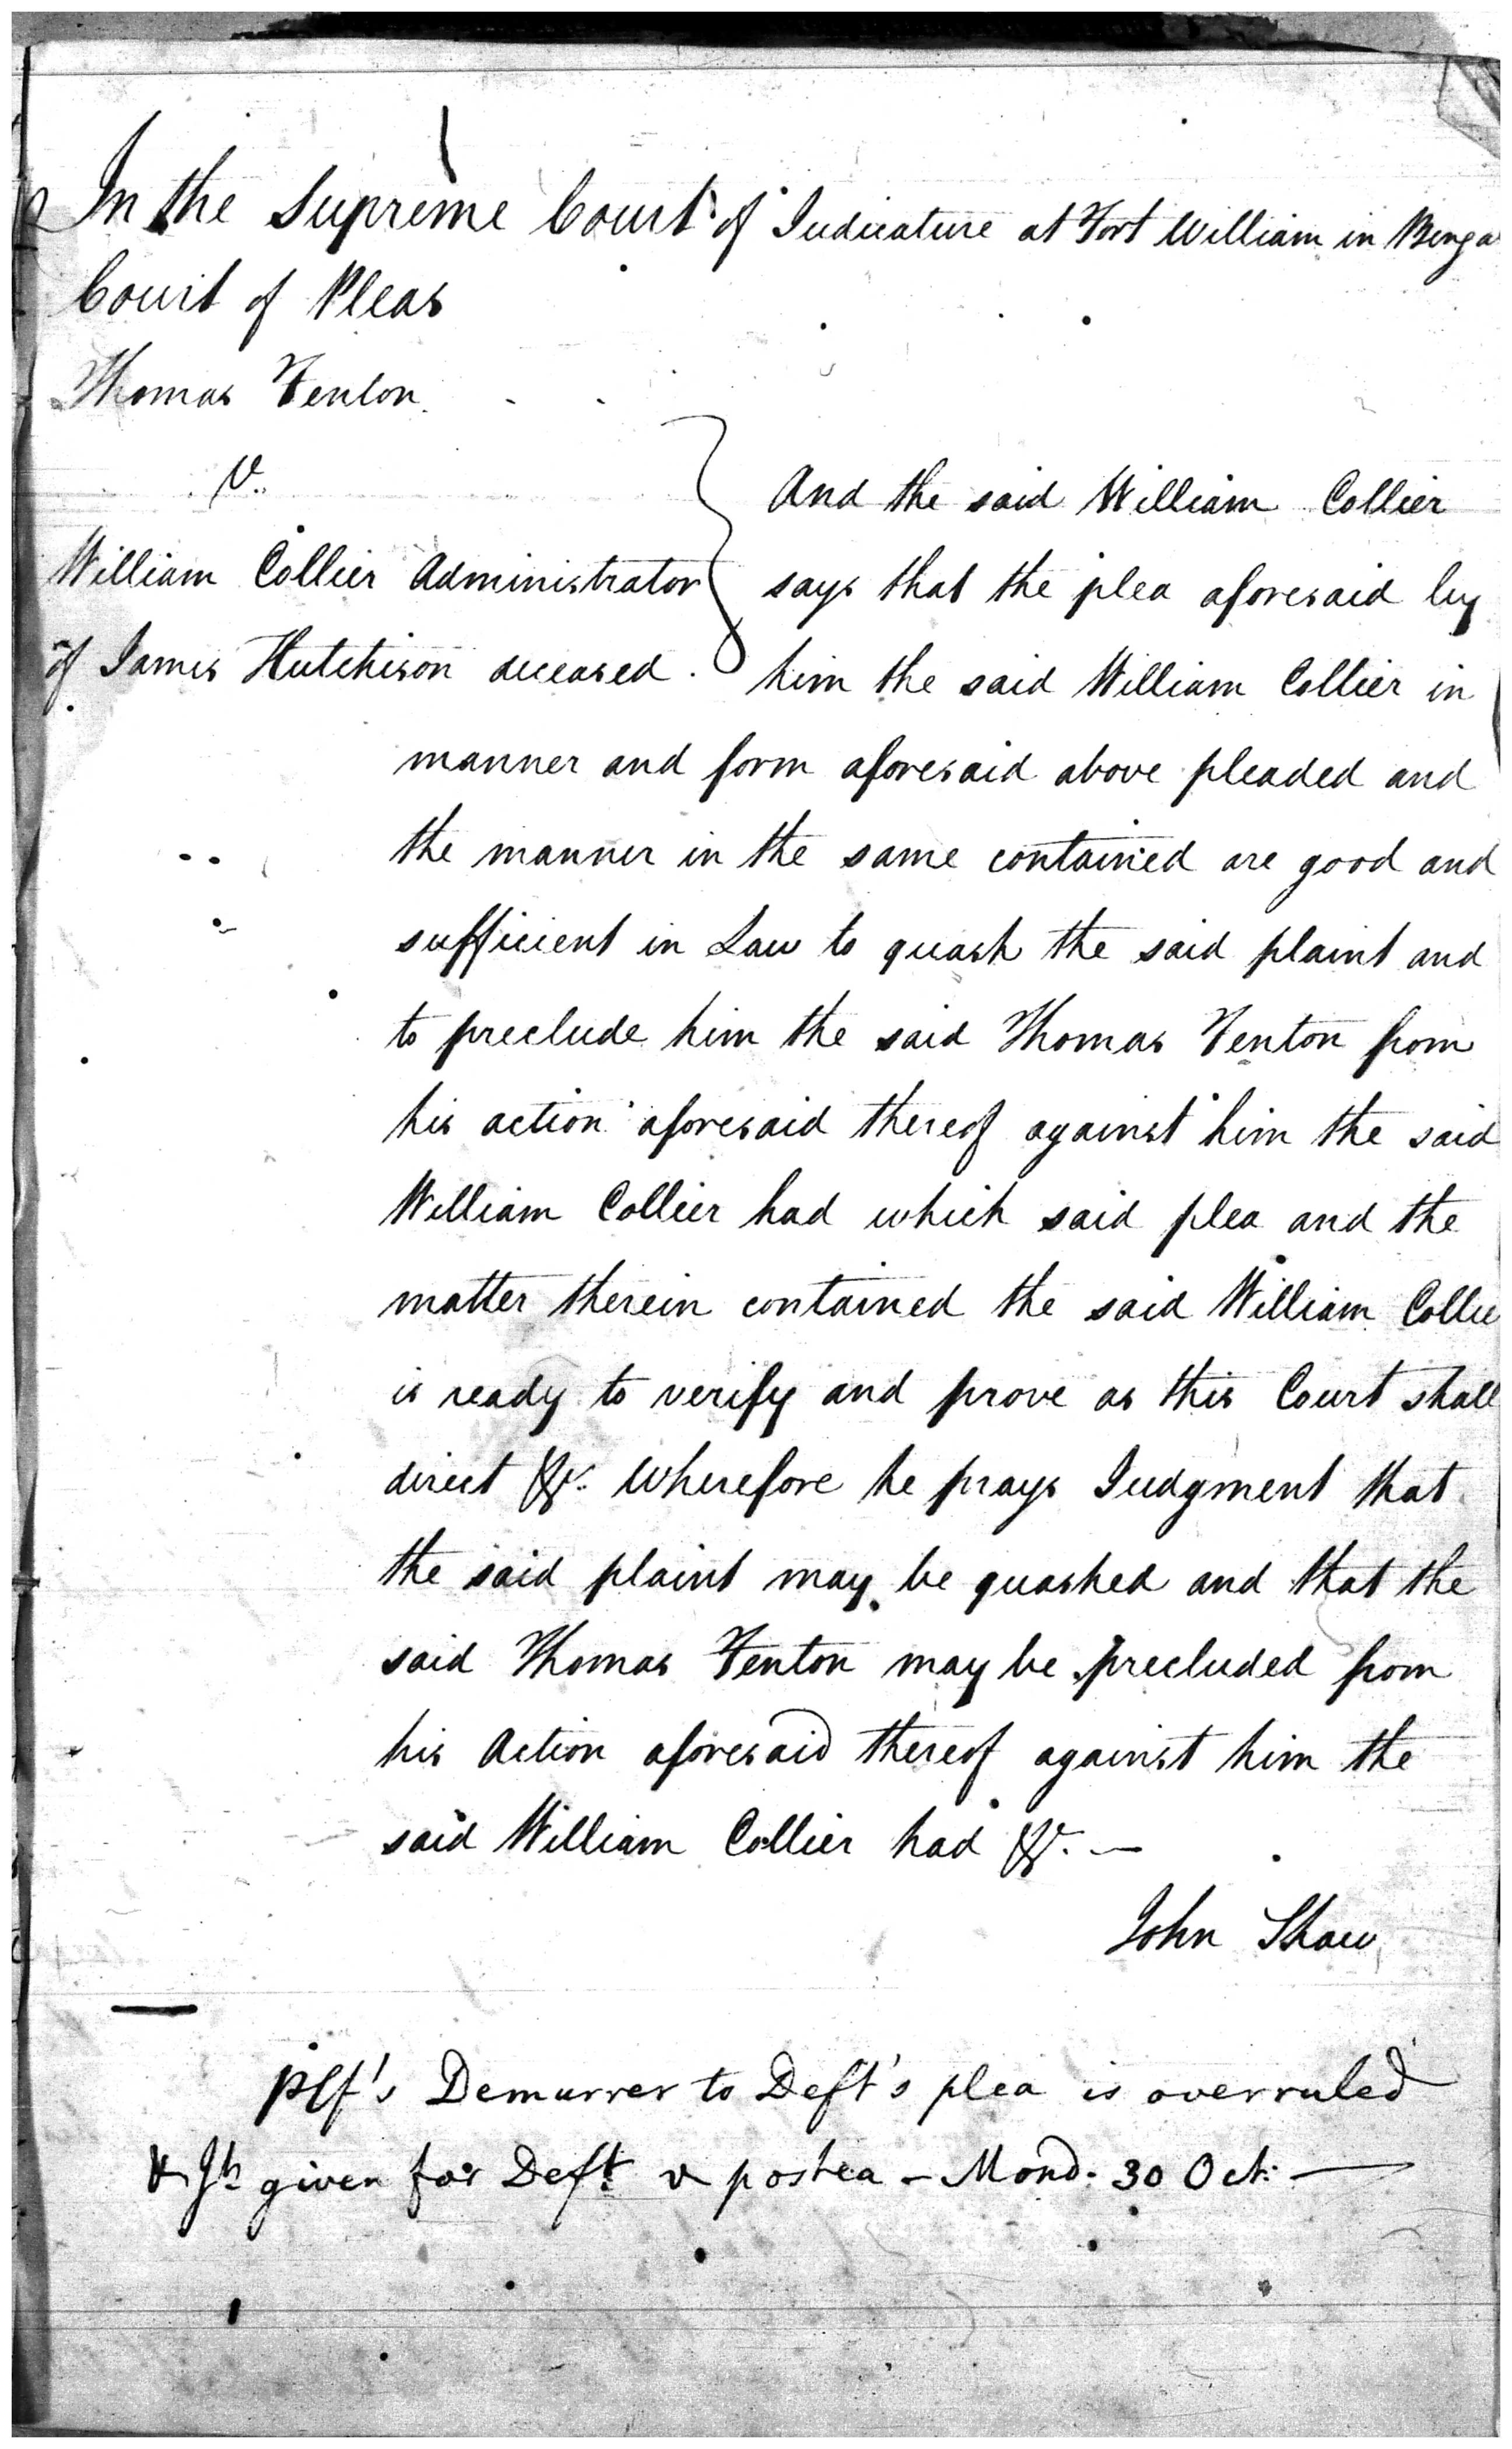 In the Supreme Court of Judicature at Fort William in Benga
Court of Pleas
Thomas Fenton
v.
William Collier Administrator
of James Hutchison deceased.
And the said William Collier
says that the plea aforesaid by
him the said William Collier in
manner and form aforesaid above pleaded and
the manner in the same contained are good and
sufficient in Law to quash the said plaint and
to preclude him the said Thomas Fenton from
his action aforesaid thereof against him the said
William Collier had which said plea and the
matter therein contained the said William Collie
is ready to verify and prove as this Court shall
direct &c. Wherefore he prays Judgment that
the said plaint may be quashed and that the
said Thomas Fenton may be precluded from
his Action aforesaid thereof against him the
said William Collier had &c. —
John Shaw
Plf's Demurrer to Deft's plea is overruled
& Jt given for Deft v postea – Mond. 30 Oct. —